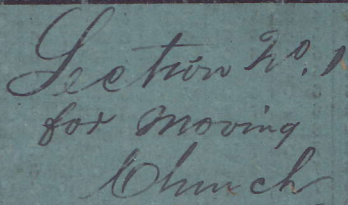 Section No. 1
for moving
Church